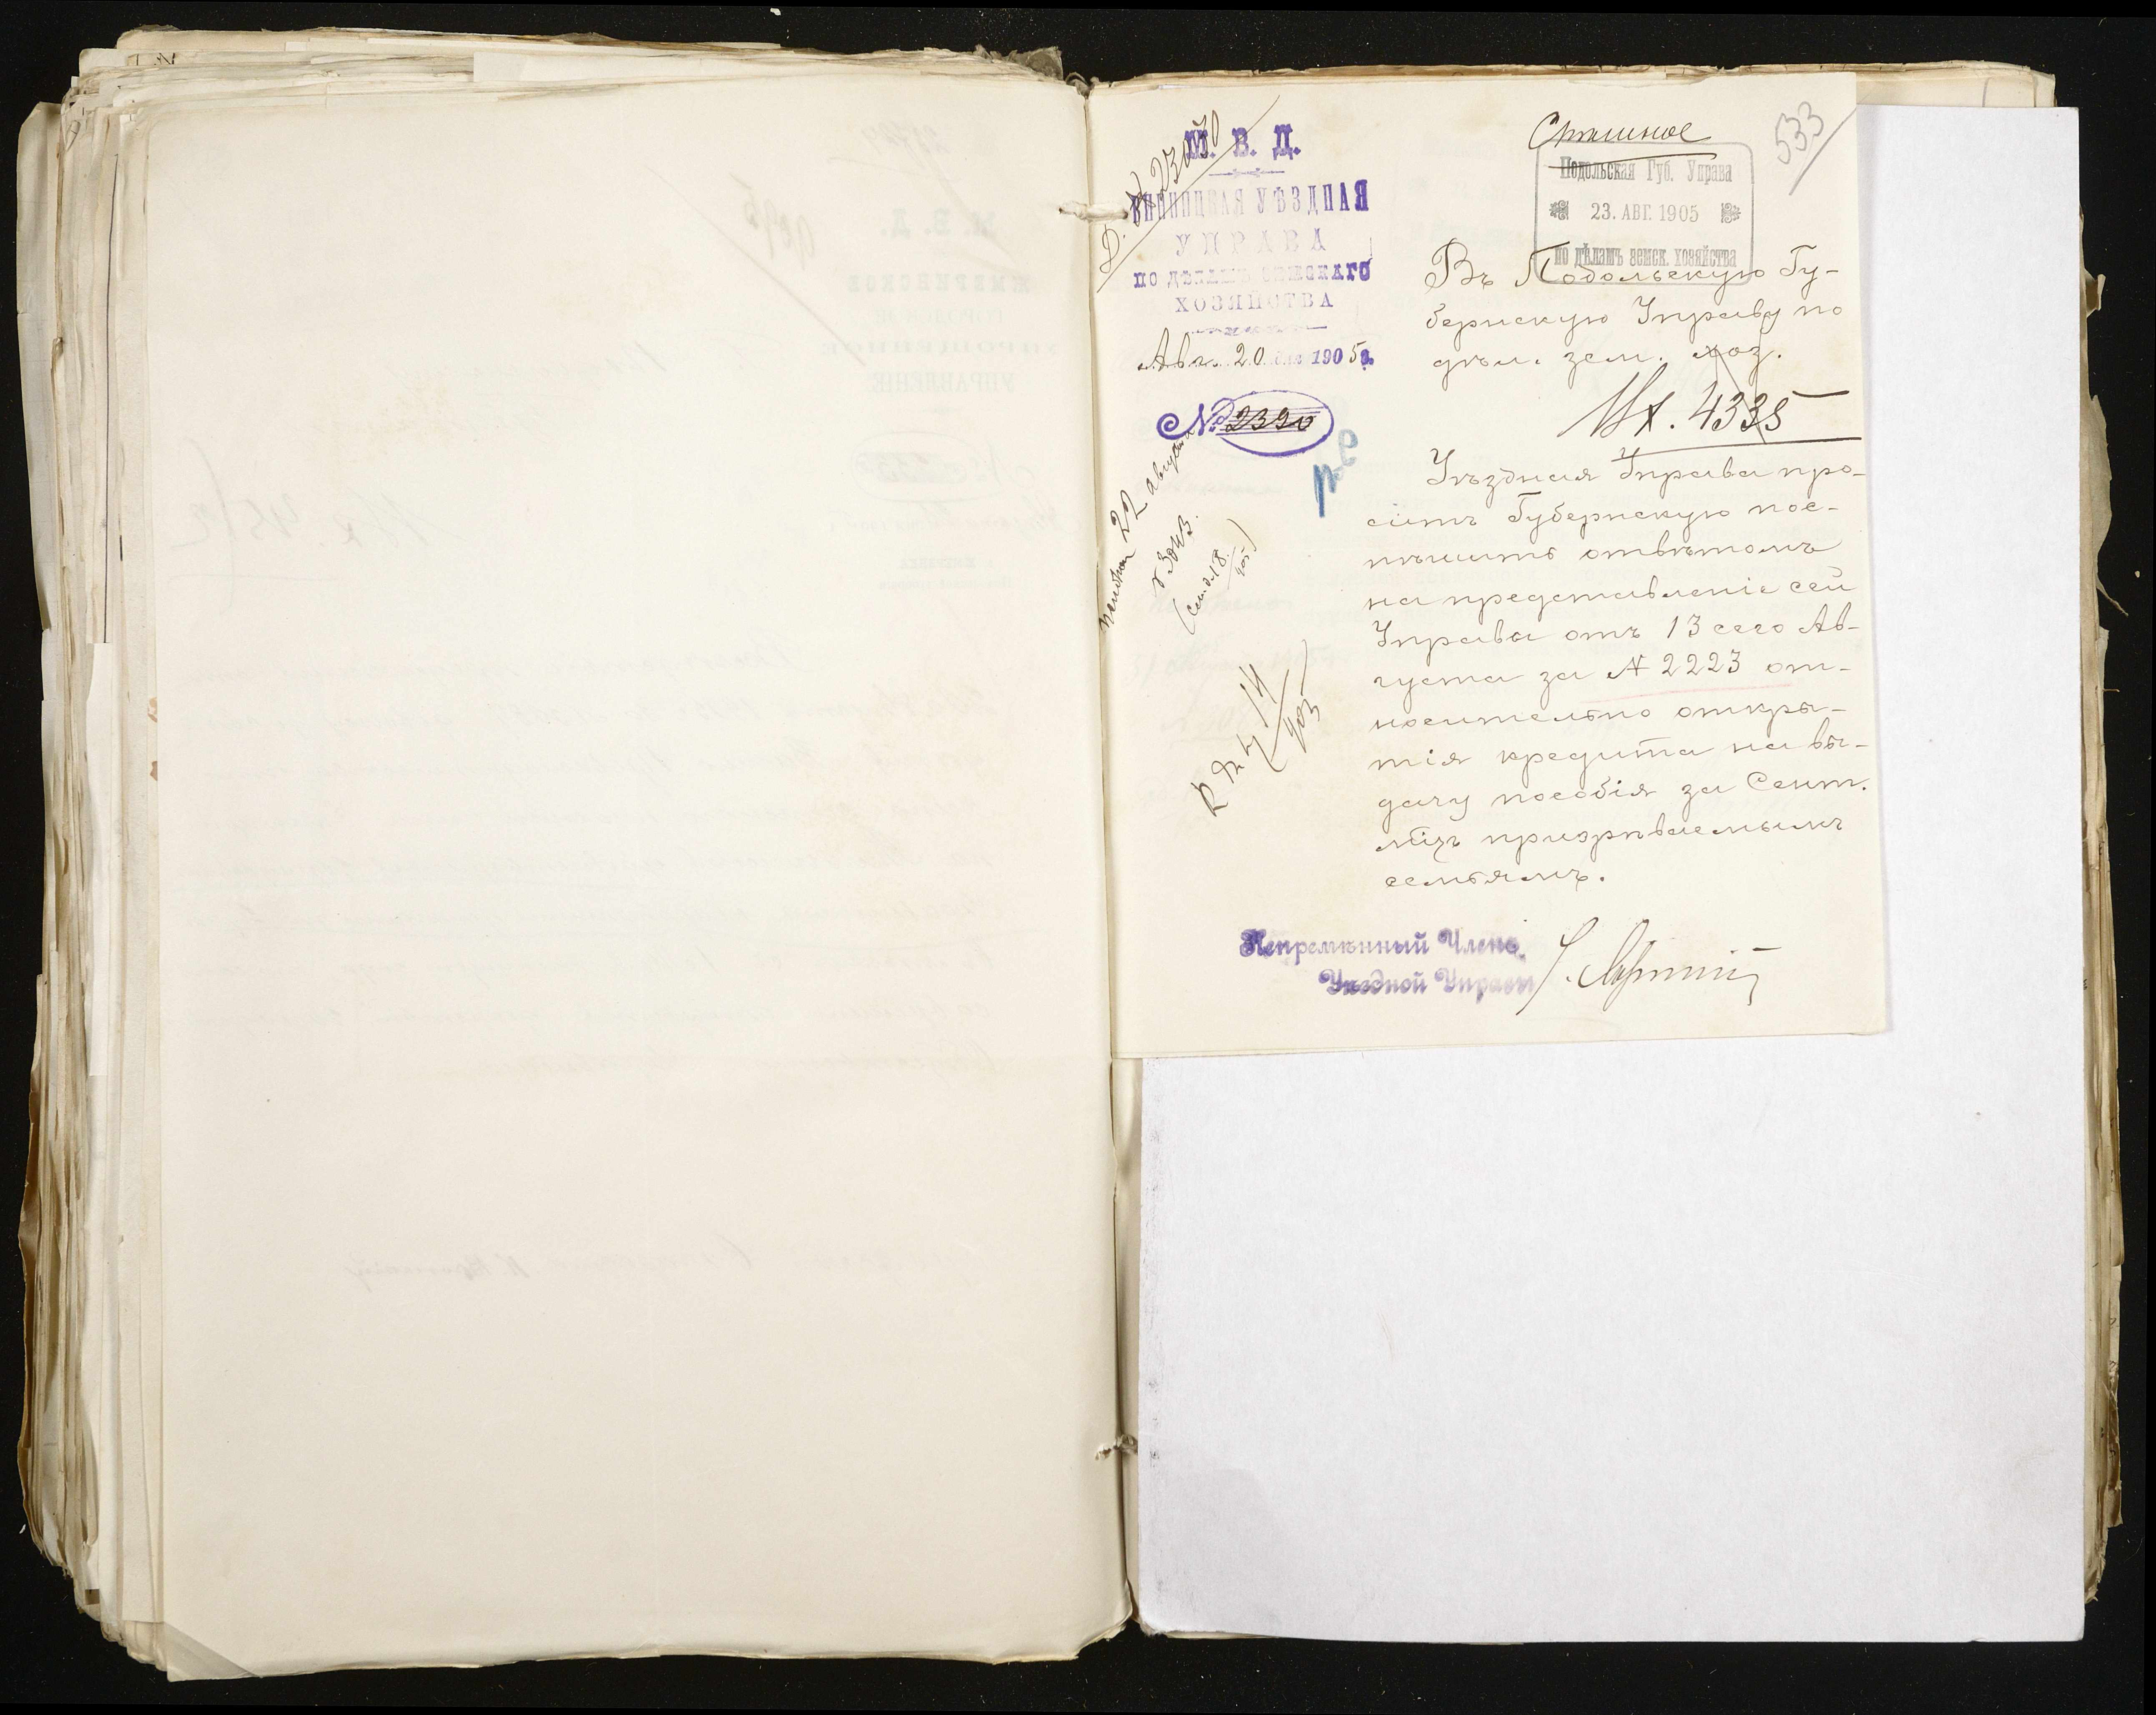 М. В. Д.
ВИННИЦКАЯ УѢЗДНАЯ
УПРАВА
ПО ДѢЛАМЪ ЗЕМСКАГО
ХОЗЯЙСТВА
Авг. 20 дня 1905 г.
№ 2390
533
Спѣшное
Подольская Губ. Управа
23. АВГ. 1905
по дѣламъ земск. хозяйства
Въ Подольскую Гу-
бернскую Управу по
дѣл. зем. хоз.
Вх. 4335
Уѣздная Управа про-
ситъ Губернскую пос-
пѣшить отвѣтомъ
на представленіе сей
Управы отъ 13 сего Ав-
густа за № 2223 от-
носительно откры-
тія кредита на вы-
дачу пособія за Сент.
м̃цъ призрѣваемымъ
семьямъ.
22 августа
Непремѣнный Членъ
Уѣздной Управы